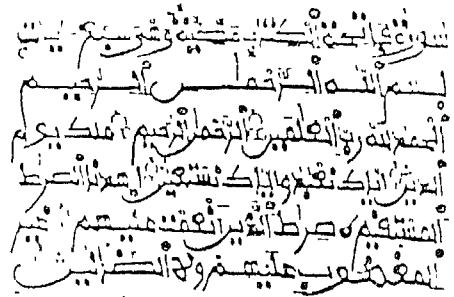 سورة فاتحة الكتب مكية وهي سبع ايت
بسم الله الرحمن الرحيم
الحمد لله رب العلمين الرحمن الرحيم ملك يوم
الدين اياك نعبد واياك نستعين اهدنا الصرط
المستقيم صرط الذين انعمت عليهم غير
المغضوب عليهم ولا الضالين